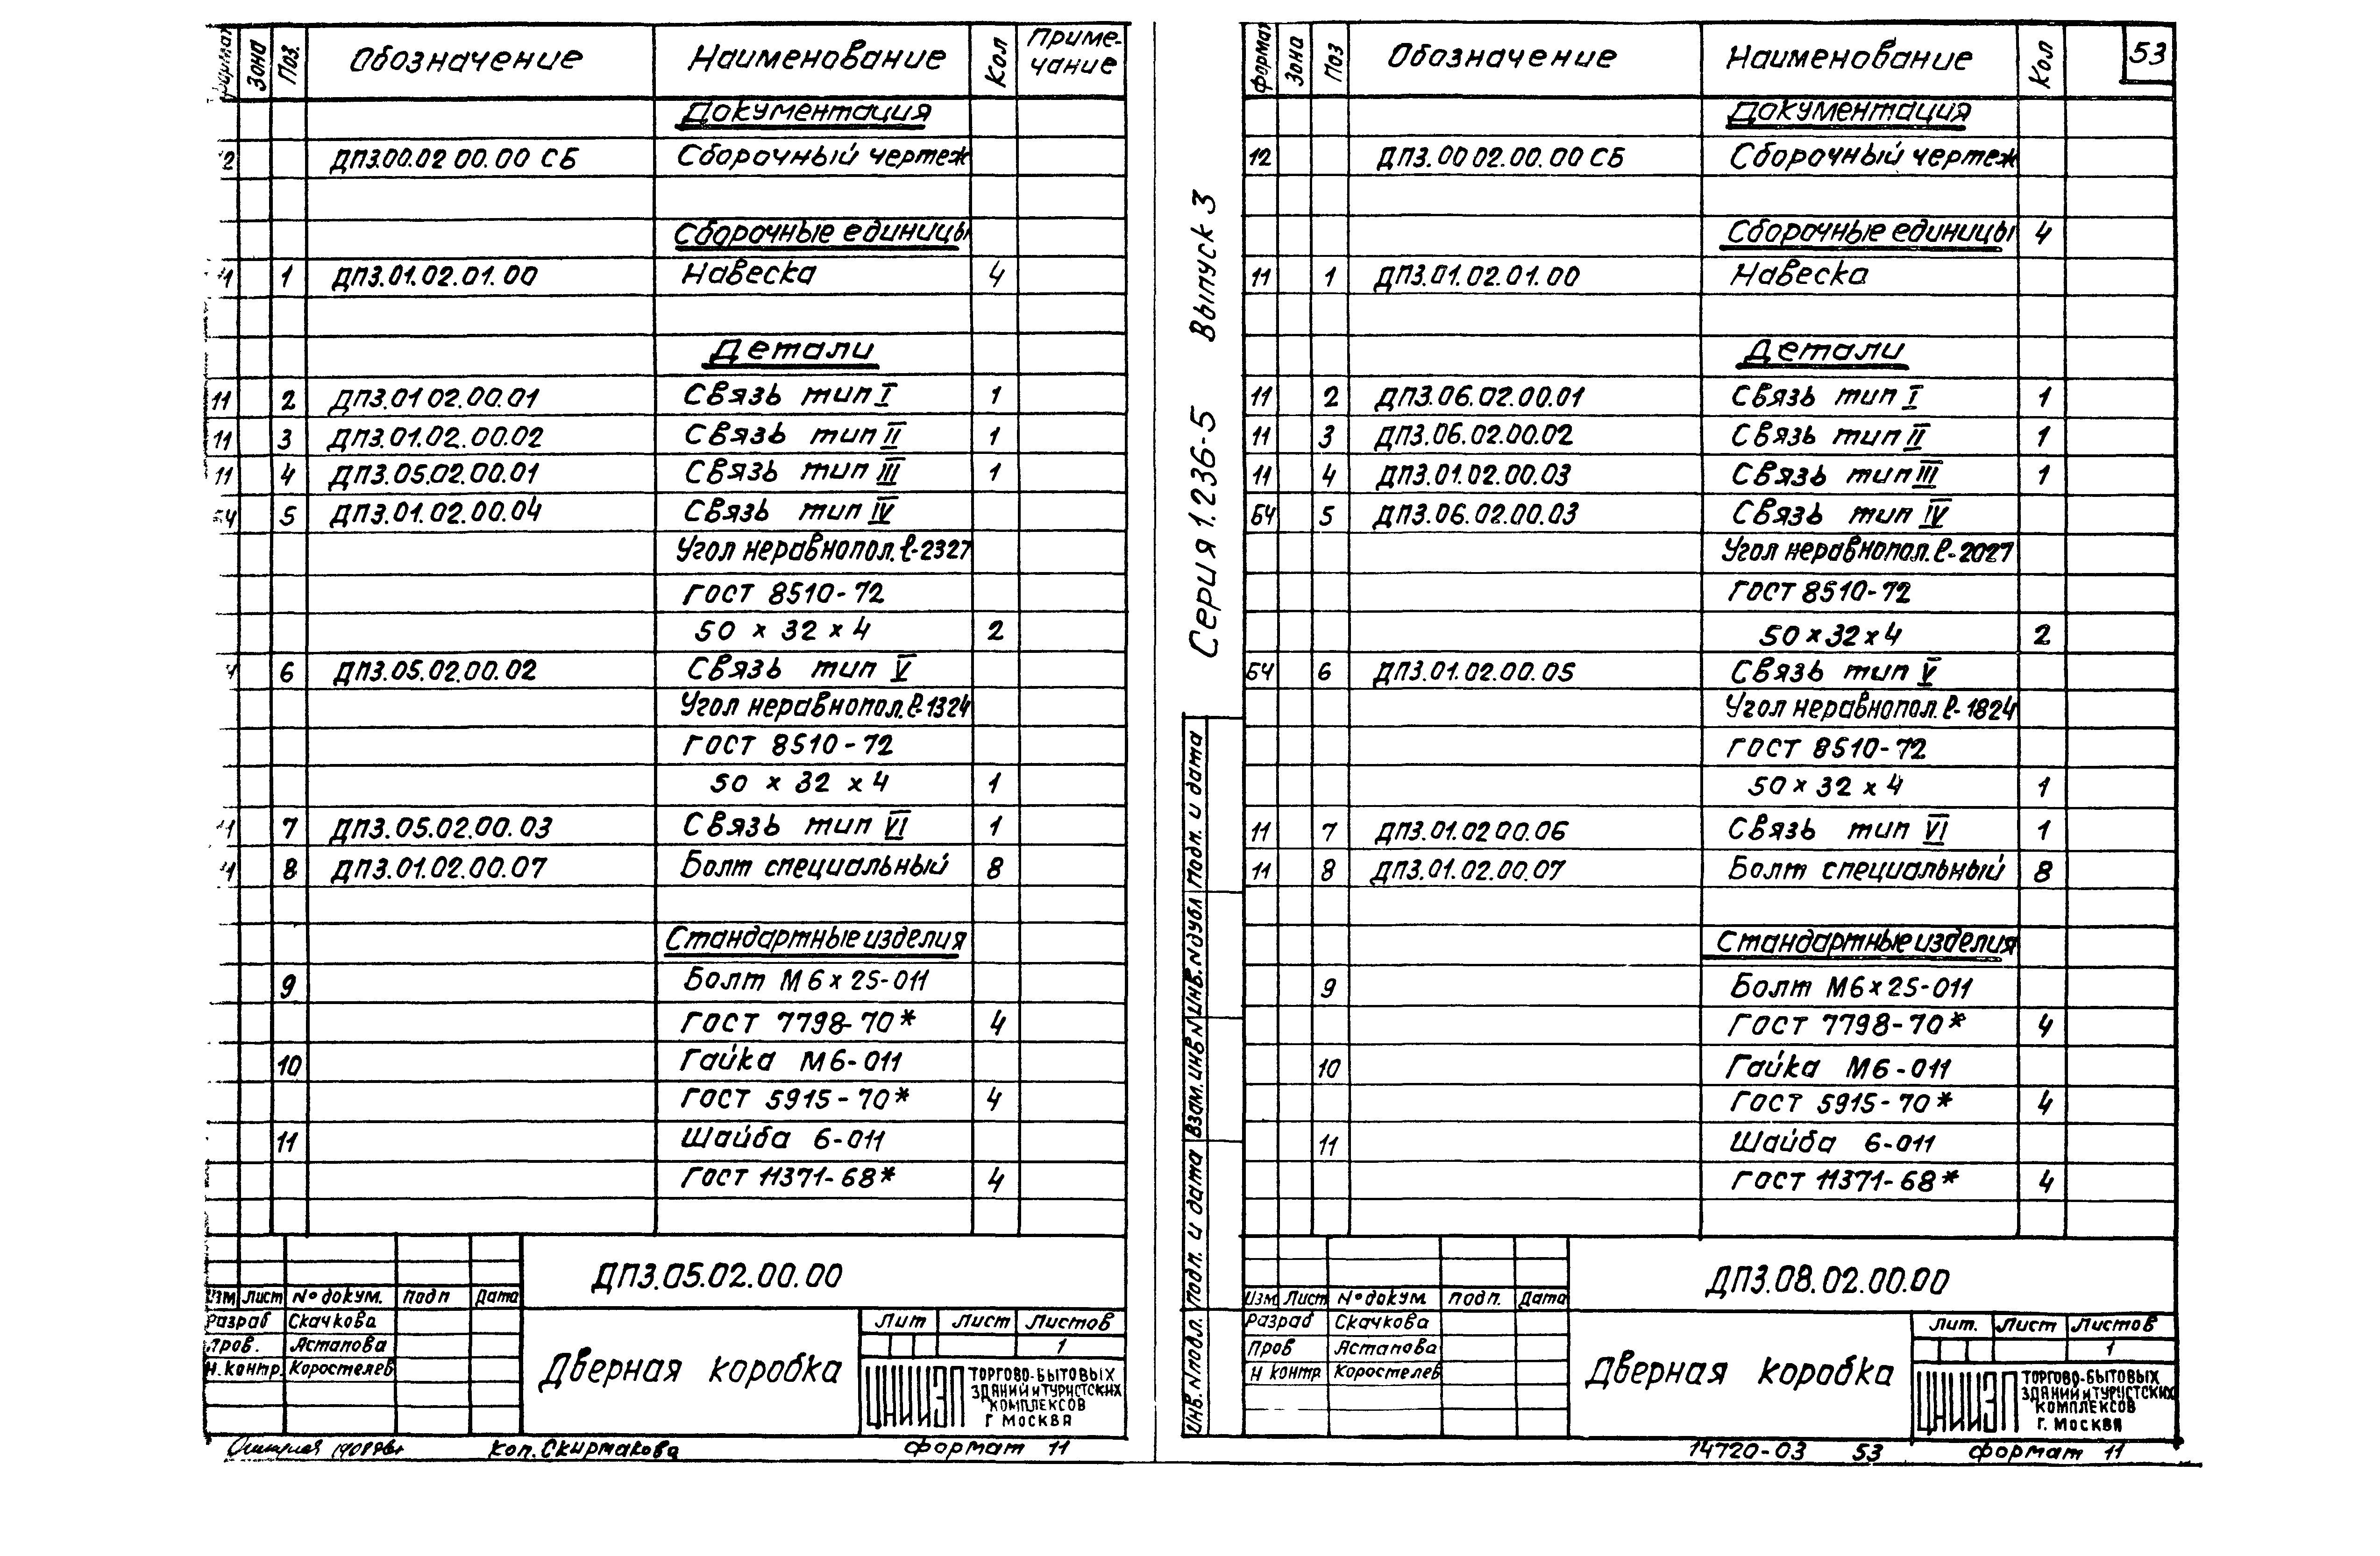 формат Зона Поз. Обозначение Наименование Кол Приме-чание
Документация
12 ДПЗ.00.02 00.00 СБ Сборочный чертеж
Сборочные единицы
1 ДПЗ.01.02.01.00 Навеска 4
Детали
11 2 ДПЗ.01 02.00.01 Связь тип I 1
11 3 ДПЗ.01.02.00.02 Связь тип II 1
11 4 ДПЗ.05.02.00.01 Связь тип III 1
БЧ 5 ДПЗ.01.02.00.04 Связь тип IV
Угол неравнопол. ℓ-2327
ГОСТ 8510-72
50 х 32 х 4 2
6 ДПЗ.05.02.00.02 Связь тип V
Угол неравнопол. ℓ-1324
ГОСТ 8510-72
50 х 32 х 4 1
7 ДПЗ.05.02.00.03 Связь тип VI 1
8 ДПЗ.01.02.00.07 Болт специальный 8
Стандартные изделия
9 Болт М6х25-011
ГОСТ 7798-70* 4
10 Гайка М6-011
ГОСТ 5915-70* 4
11 Шайба 6-011
ГОСТ 11371-68* 4
ДПЗ.05.02.00.00
Изм Лист № докум. Подп Дата
Разраб Скачкова
Пров. Астапова
Н. контр. Коростелев
Дверная коробка
Лит Лист Листов
1
ЦНИИЭП ТОРГОВО-БЫТОВЫХ
ЗДАНИЙ И ТУРИСТСКИХ
КОМПЛЕКСОВ
Г МОСКВА
коп. Скирмакова формат 11
Серия 1.236-5 Выпуск 3
Инв. № подл. Подп. и дата Взам. инв № Инв. № дубл Подп. и дата
формат Зона Поз Обозначение Наименование Кол 53
Документация
12 ДПЗ.00 02.00.00 СБ Сборочный чертеж
Сборочные единицы 4
11 1 ДПЗ.01.02.01.00 Навеска
Детали
11 2 ДПЗ.06.02.00.01 Связь тип I 1
11 3 ДПЗ.06.02.00.02 Связь тип II 1
11 4 ДПЗ.01.02.00.03 Связь тип III 1
БЧ 5 ДПЗ.06.02.00.03 Связь тип IV
Угол неравнопол. ℓ-2027
ГОСТ 8510-72
50х32х4 2
БЧ 6 ДПЗ.01.02.00.05 Связь тип V
Угол неравнопол. ℓ-1824
ГОСТ 8510-72
50х32х4 1
11 7 ДПЗ.01.02 00.06 Связь тип VI 1
11 8 ДПЗ.01.02.00.07 Болт специальный 8
Стандартные изделия
9 Болт М6х25-011
ГОСТ 7798-70* 4
10 Гайка М6-011
ГОСТ 5915-70* 4
11 Шайба 6-011
ГОСТ 11371-68* 4
ДПЗ.08.02.00.00
Изм Лист № докум подп. Дата
Разраб Скачкова
Пров Астапова
Н контр Коростелев
Дверная коробка
Лит. Лист Листов
1
ЦНИИЭП ТОРГОВО-БЫТОВЫХ
ЗДАНИЙ И ТУРИСТСКИХ
КОМПЛЕКСОВ
Г. МОСКВА
14720-03 53 формат 11